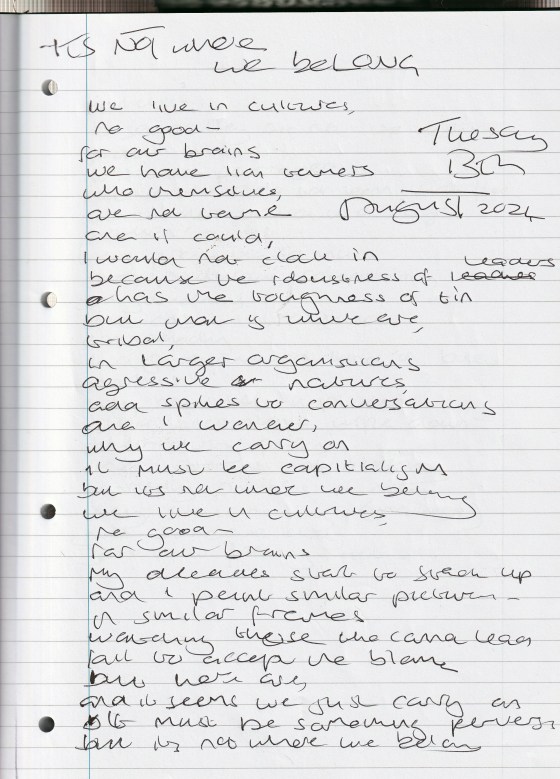 its Not where
we belong
we live in cultures,
no good-
for our brains
Tuesday
13th
August 2024
we have lion tamers
who themselves,
are not tame
and if I could,
I would not clock in
because the robustness of leaders
has the toughness of tin
but that is what we are,
tribal,
in Larger organisations
agressive natures,
add spikes to conversations
and i wonder,
why we carry on
it must be capitialism
but its not where we belong
we live in cultures
no good-
for our brains
my decades start to stack up
and i paint similar pictures-
in similar frames
watching those who cannot lead
fail to accept the blame
but here are,
and it seems we just carry on
it must be something perverse
but its not where we belong